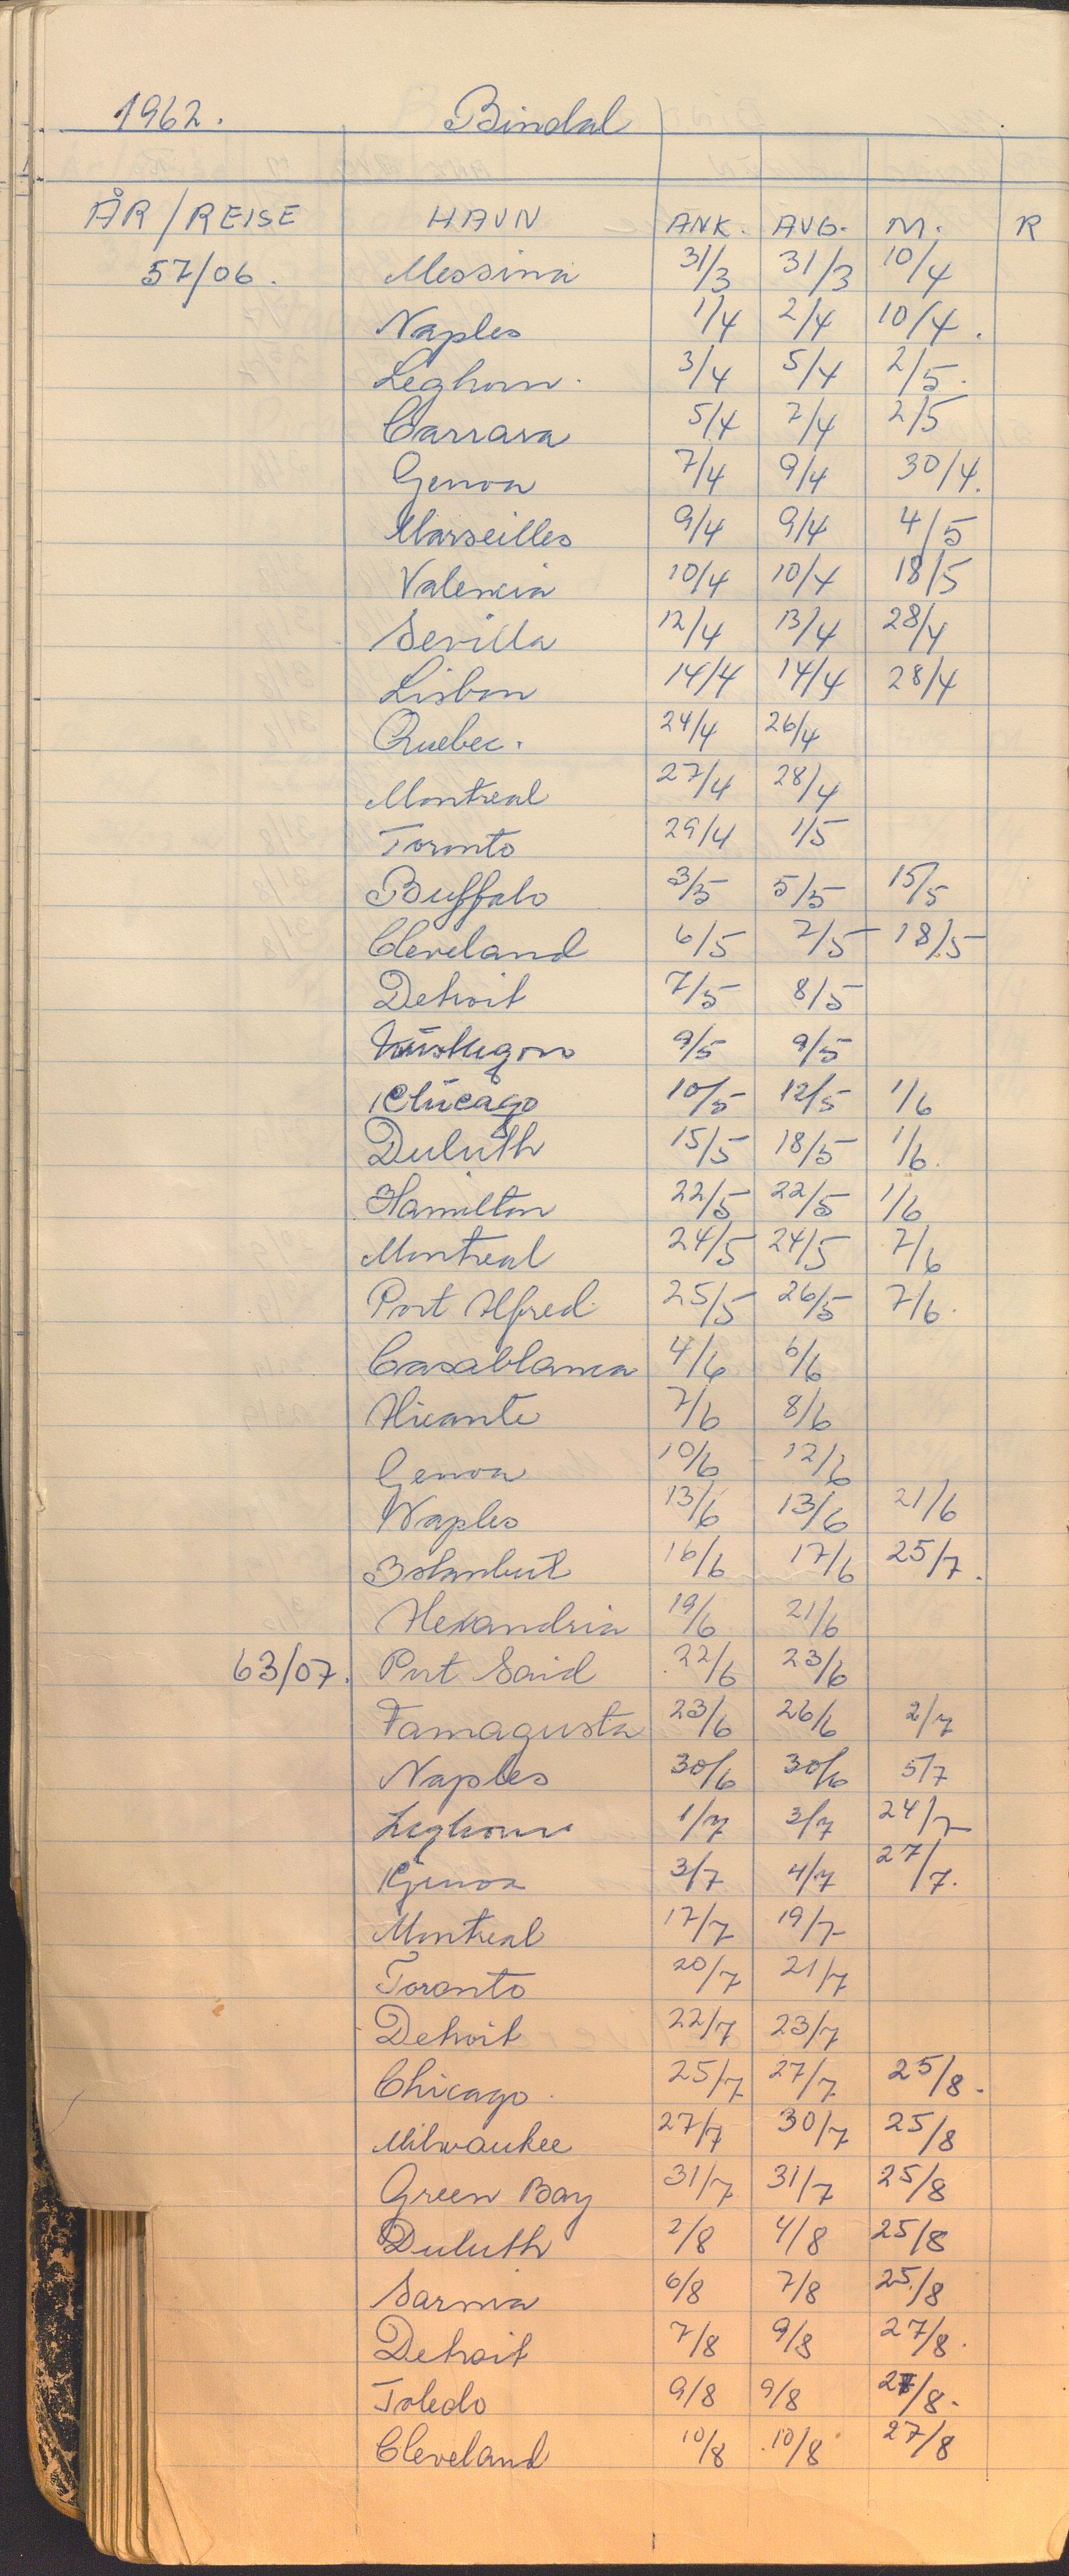 1962. Bindal
ÅR/REISE HAVN ANK. AVG. M. R
57/06. Messina 31/3 31/3 10/4
Naples 1/4 2/4 10/4.
Leghorn. 3/4 5/4 2/5.
Carrara 5/4 7/4 2/5
Genoa 7/4 9/4 30/4.
Marseilles 9/4 9/4 4/5
Valencia 10/4 10/4 18/5
Sevilla 12/4 13/4 28/4
Lisbon 14/4 14/4 28/4
Quebec. 24/4 26/4
Montreal 27/4 28/4
Toronto 29/4 1/5
Buffalo 3/5 5/5 15/5
Cleveland 6/5 7/5 18/5
Detroit 7/5 8/5
Muskegon 9/5 9/5
Chicago 10/5 12/5 1/6
Duluth 15/5 18/5 1/6.
Hamilton 22/5 22/5 1/6
Montreal 24/5 24/5 7/6
Port Alfred 25/5 26/5 7/6.
Casablanca 4/6 6/6
Alicante 7/6 8/6
Genoa 10/6 12/6
Naples 13/6 13/6 21/6
Istanbul 16/6 17/6 25/7.
Alexandria 19/6 21/6
63/07. Port Said 22/6 23/6
Famagusta 23/6 26/6 2/7
Naples 30/6 30/6 5/7
Leghorn 1/7 3/7 24/7
Genoa 3/7 4/7 27/7.
Montreal 17/7 19/7
Toronto 20/7 21/7
Detroit 22/7 23/7
Chicago. 25/7 27/7 25/8.
Milwaukee 27/7 30/7 25/8
Green Bay 31/7 31/7 25/8
Duluth 2/8 4/8 25/8
Sarnia 6/8 7/8 25/8
Detroit 7/8 9/8 27/8.
Toledo 9/8 9/8 27/8.
Cleveland 10/8 10/8 27/8